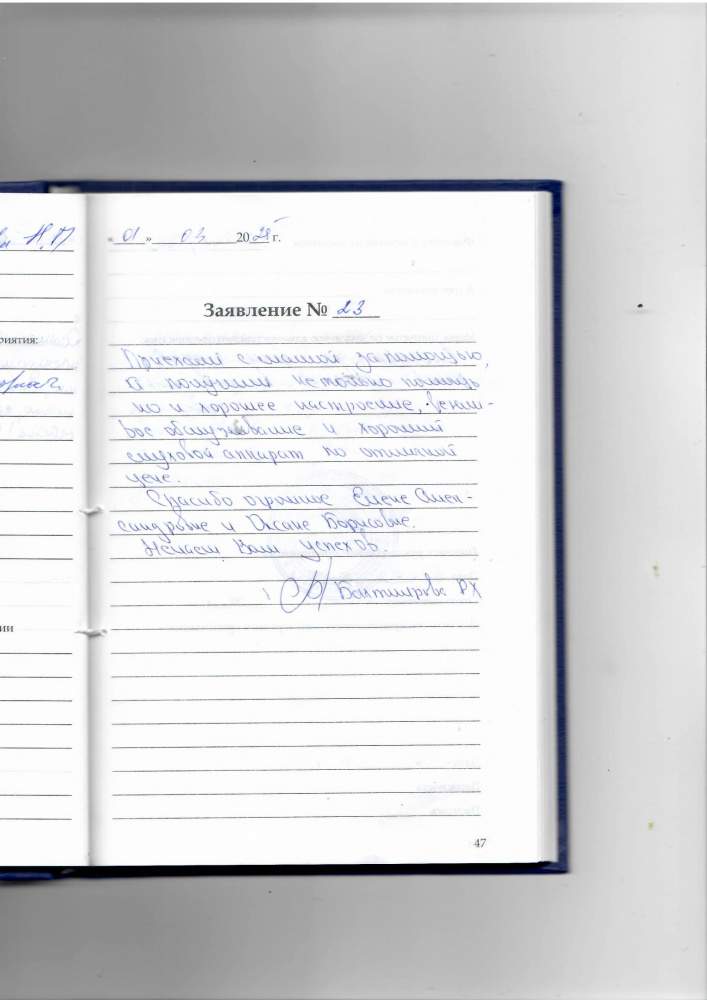 Н.П
«01» 03 2021 г.
Заявление № 23
риятия:
Приехали с мамой за помощью,
а получили не только помощь
но и хорошее настроение, вежли-
вое обслуживание и хороший
слуховой аппарат по отличной
цене.
Спасибо огромное Елене Алек-
сандровне и Оксане Борисовне.
Желаем Вам успехов.
РХ
ии
47